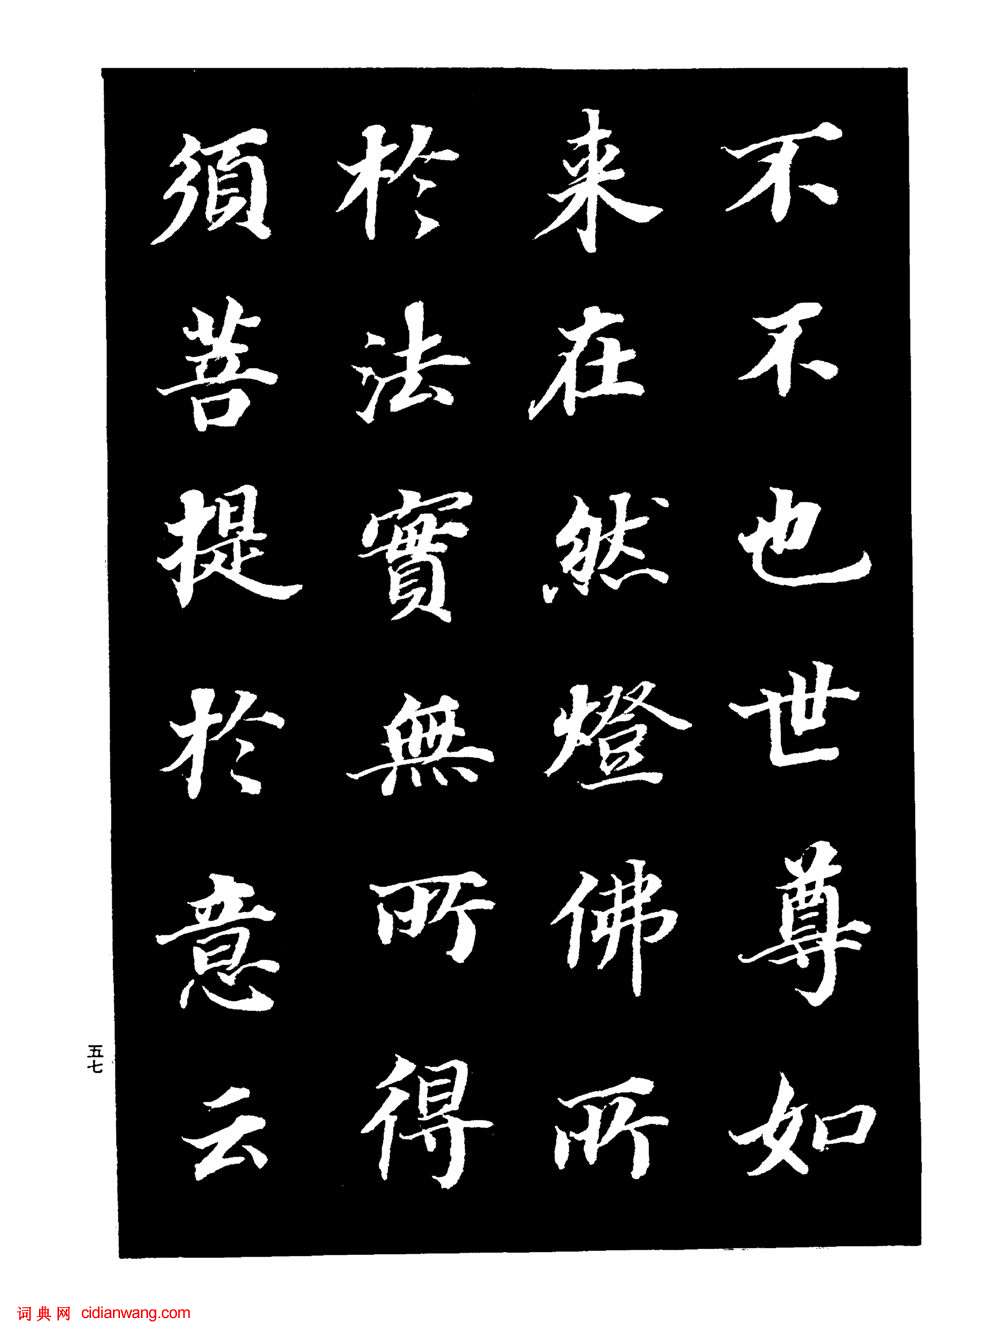 不不也世尊如
来在然燈佛所
於法實無所得
須菩提於意云
五七
词典网 cidianwang.com